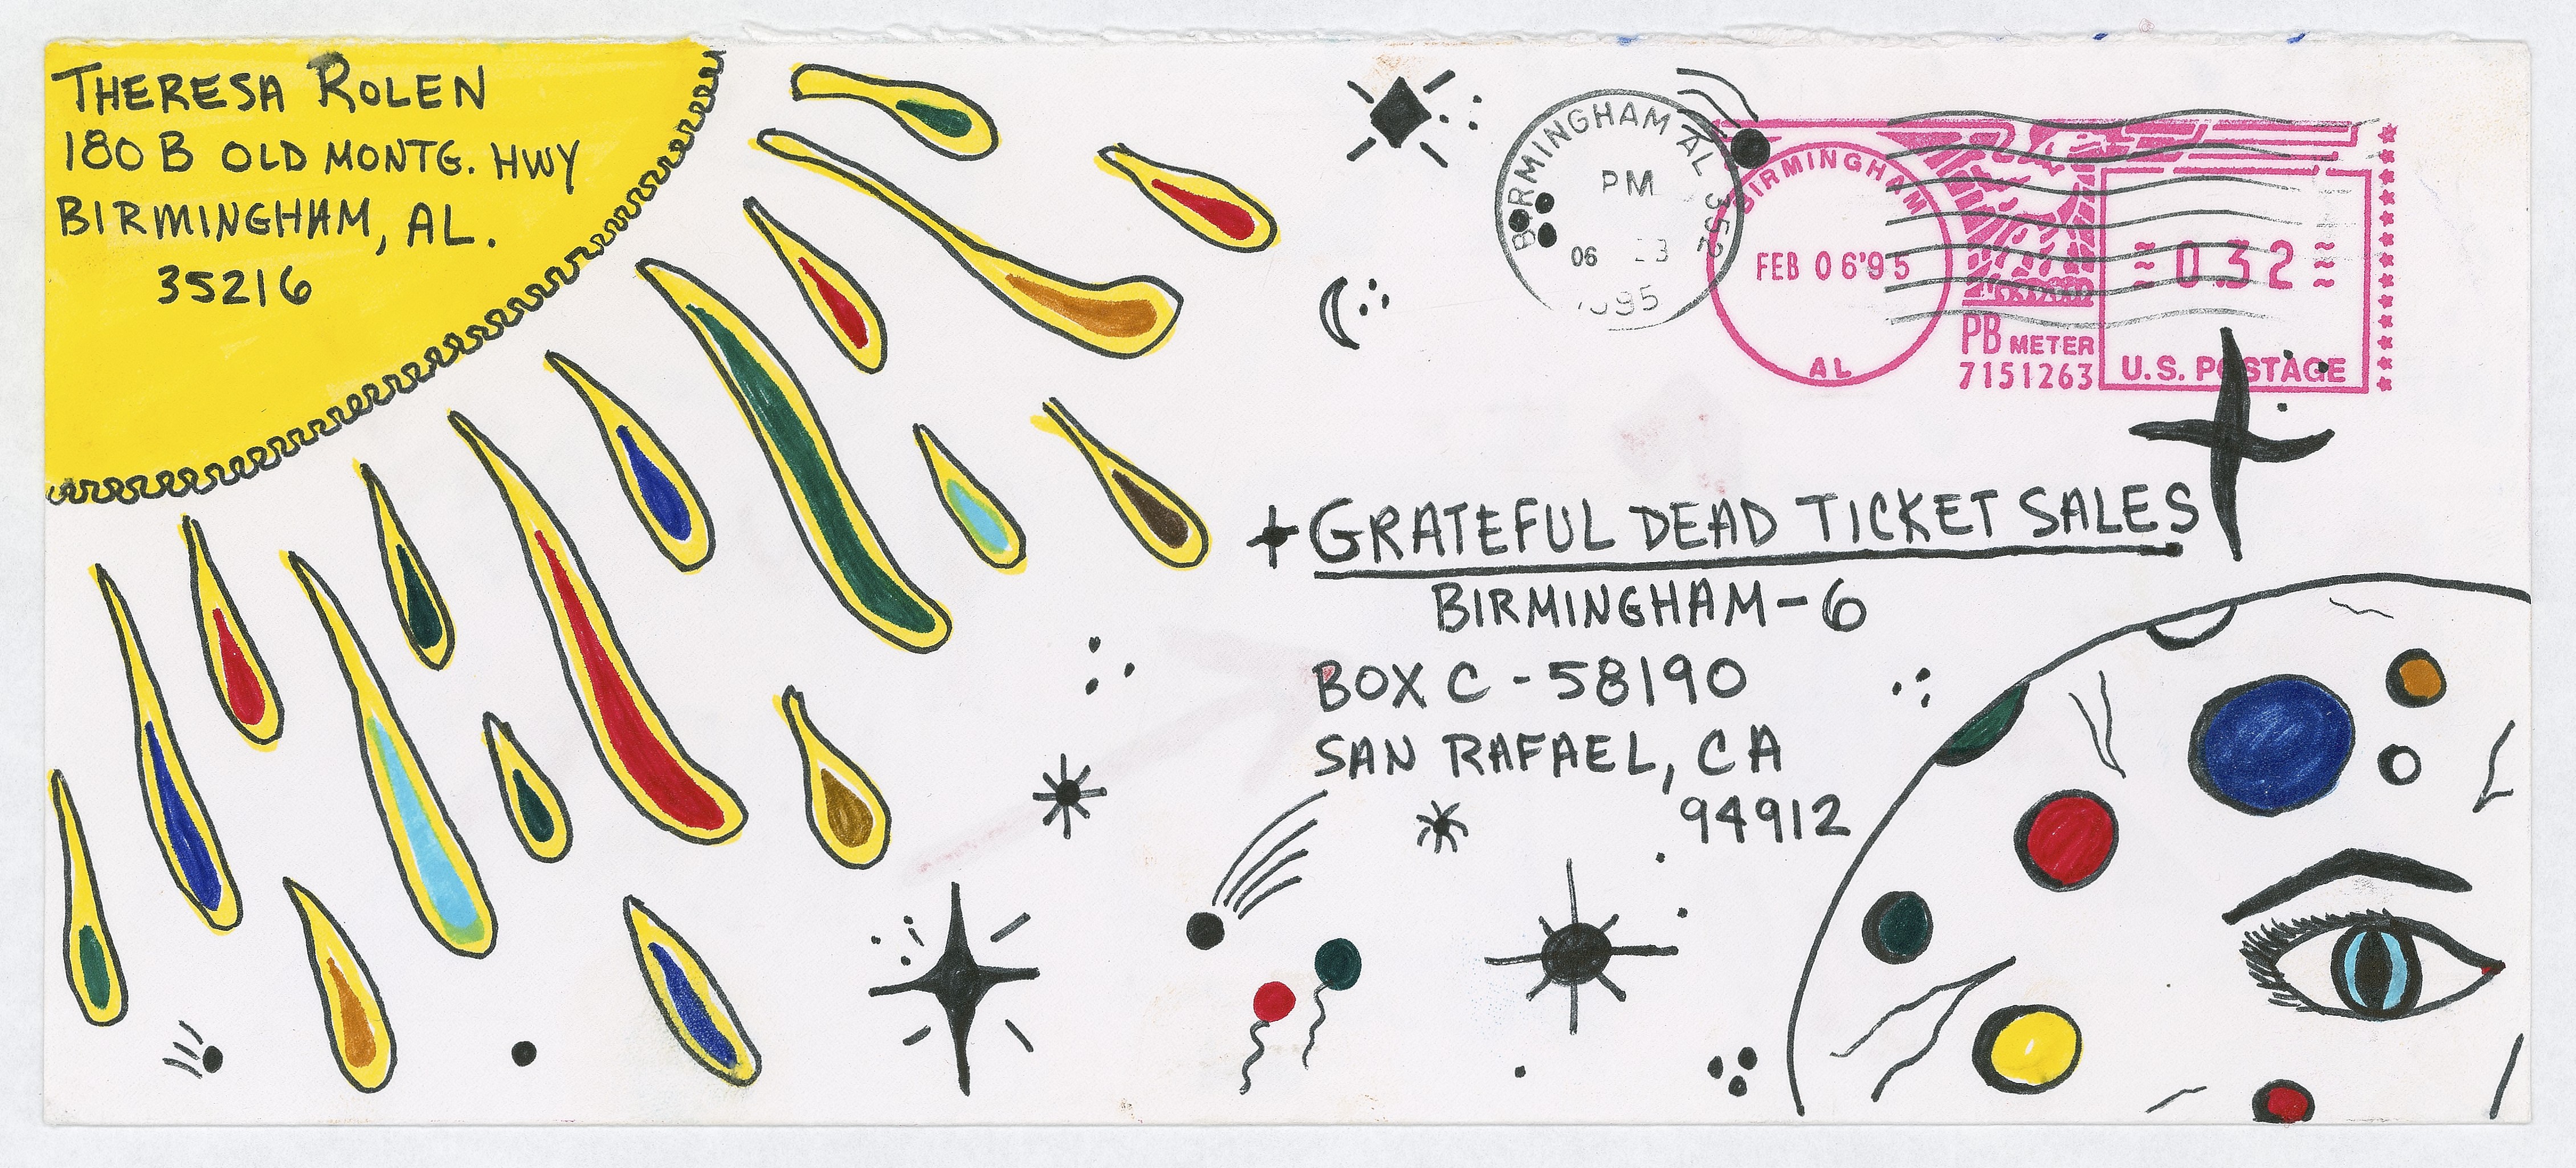 THERESA ROLEN
180 B OLD MONTG. HWY
BIRMINGHAM, AL.
35216
BIRMINGHAM AL 352
PM
06
1995
BIRMINGHAM
FEB 06'95
AL
PB METER
7151263
0.32
U.S. POSTAGE
GRATEFUL DEAD TICKET SALES
BIRMINGHAM-6
BOX C-58190
SAN RAFAEL, CA
94912